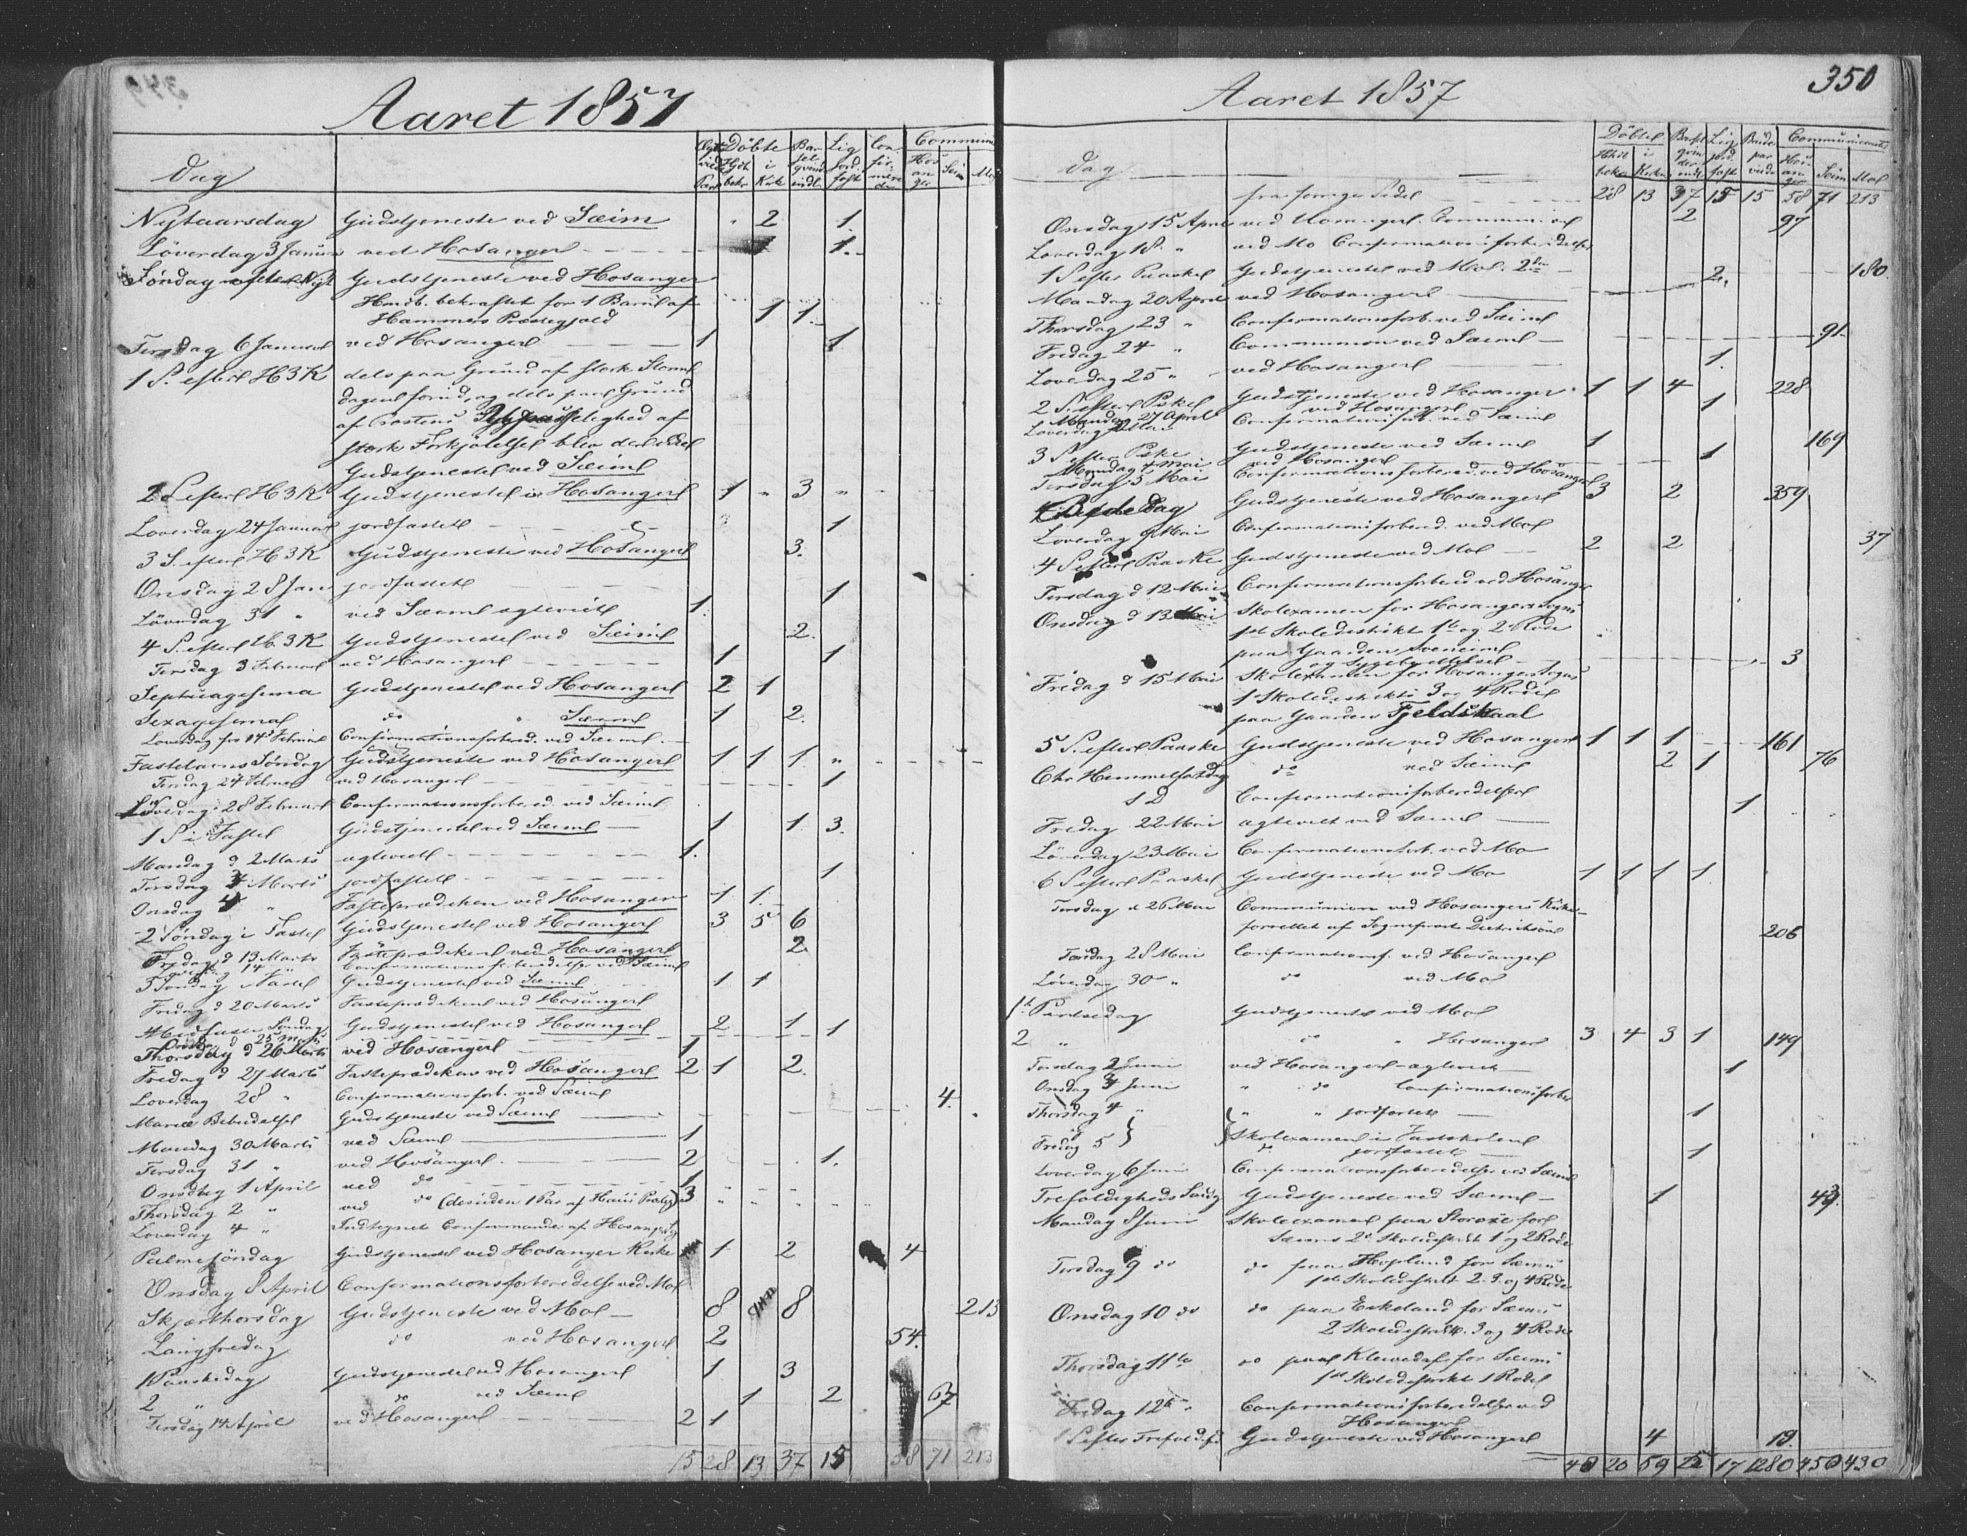 Aaret 1857
Dag
Ægte viede Par
Døbte
Hjdb. bekr.
i Kirk
Bar selqvind indl.
Lig Jord fæst
Con fir mere de
Commun
Hos an ger
Sæm
Mo
Nytaarsdag Gudstjeneste ved Sæim 2 1.
Löverdag 3 Januar ved Hosanger 1.
Söndag efter Nyt Gudstjeneste ved Hosanger
Hmdb. bekræftet for 1 Barn af 1 1.
Hammers Præstegjeld
Tirsdag 6 Januar ved Hosanger 1 1
1 S. efter H 3 K dels paa Grund af stærk Storm
dagen forud, og dels paa Grund
af Provstens Upasselighed af
stærk Forkjölelse blev der ei
Gudstjeneste ved Sæim
2 S. efter H 3 K Gudstjeneste i Hosanger 1 " 3 "
Loverdag 24 Januar jordfæstet 1
3 S. efter H 3 K Gudstjeneste ved Hosanger 3.
Onsdag 28 Jan jordfæstet 1
Löverdag 31 " ved Sæim ægteviet 1.
4 S. efter H. 3 K Gudstjeneste ved Sæim 2.
Tirsdag 3 Februar ved Hosanger 1 1
Septuagesima Gudstjeneste ved Hosanger 2 1
Sexagesima do " Sæim 1 2.
Loverdag 14 Februar Confirmationsforbered. ved Sæim
Fastelavns Söndag Gudstjeneste ved Hosanger 1 1 1 "
Tirsdag 24 Februar ved Hosanger 1
Löverdag 28 Februar Confirmationsforbered. ved Sæim
1 S i Faste Gudstjeneste ved Sæim 1 1 3.
Mandag d 2 Marts ægteviet 1.
Tirsdag 3 Marts jordfæstet 1
Onsdag 4 " Fasteprædiken ved Hosanger 1 1.
2 Söndag i Faste Gudstjeneste ved Hosanger 3 5 6
Fredag d 13 Marts Fasteprædiken ved Hosanger 2
Loverdag 14 " Confirmationsforberedelse ved Sæim
3 Söndag i Faste Gudstjeneste ved Sæim 1 1
Fredag d 20 Marts Fasteprædiken ved Hosanger
4 Midfaste Söndag Gudstjeneste ved Hosanger 2 1 1
Onsdag d 25 Marts
Thorsdag d 26 Marts ved Hosanger 1
Fredag d 27 Marts Fasteprædiken ved Hosanger 2 1 2.
Loverdag 28 " Confirmationsforb. ved Sæim
Mariæ Bebudelse Gudstjeneste ved Sæim 4.
Mandag 30 Marts ved Sæim 1
Tirsdag 31 " ved Hosanger 2 1.
Onsdag 1 April ved do 1
Thorsdag 2 " ved do (desuden 1 Par af Hams Præstg) 3
Loverdag 4 " Indtegnet Confirmander af Hosanger
Palmesöndag Gudstjeneste ved Hosanger Kirke 1 2 4
Onsdag 8 April Confirmationsforberedelse ved Mo
Skjærthorsdag Gudstjeneste ved Mo 8 8 213
Langfredag do ved Hosanger 2 54.
1 Paaskedag Gudstjeneste ved Hosanger 1 3
2 " do ved Sæim 1 2 67
Tirsdag 14 April ved Hosanger 2 1
15 28 13 37 15 58 71 213
350
Aaret 1857
Dag
Döbte
Hmdb bekr.
i Kirken
Barselqvin der indl
Lig jord. fæst
Brude par viede
Communicant.
Hos an ger
Sæim
Mo
fra forrige Side 28 13 37 15 15 58 71 213
Onsdag 15 April ved Hosanger Communion 2 97
Loverdag 18 " ved Mo Confirmationsforberedelse
1 S. efter Paaske Gudstjeneste ved Mo. 2 180
Mandag 20 April ved Hosanger
Thorsdag 23 " Confirmationsforb. ved Sæim
Fredag 24 " Communion ved Sæim 91.
Loverdag 25 " ved Hosanger 1.
2 S. efter Paaske Gudstjeneste ved Hosanger 1 1 4 228
Mandag 27 April ved Hosanger 1
Loverdag 2 Mai Confirmationsforb. ved Sæim
3 S. efter Paaske Gudstjeneste ved Sæim 1 169
Mandag 4 Mai ved Hosanger 1
Tirsdag 5 Mai Confirmationsforbered. ved Hosanger
Bededag Gudstjeneste ved Hosanger 3 2 359
Loverdag 9 Mai Confirmationsforbered. ved Mo
4 S efter Paaske Gudstjeneste ved Mo 2 2 37
Tirsdag d 12 Mai Confirmationsforbered ved Hosanger
Onsdag d 13 Mai Skolexamen for Hosangers Sogns
1ste Skoledistrikt 1ste og 2 Rode
paa Gaarden
og Sygebesøgelse 3
Fredag d 15 Mai Skolexamen for Hosangers Sogns
1 Skoledistrikts 3 og 4 Rode
paa Gaarden Fjeldskaal
5 S. efter Paaske Gudstjeneste ved Hosanger 1 1 1 161
Chr Himmelfartsdag do ved Sæim 2 1 76
S D Confirmationsforberedelse
Fredag 22 Mai ægteviet ved Sæim 1
Löverdag 23 Mai Confirmationsforb. ved Mo
6 S efter Paaske Gudstjeneste ved Mo 1 1 1 1
Tirsdag d 26 Mai Communion ved Hosangers Kirke
forrettet af Sognepræst Dietrichson 206
Torsdag 28 Mai Confirmationsf. ved Hosanger
Löverdag 30 " do ved Mo
1ste Pintsedag Gudstjeneste ved Mo
2 " do " Hosanger 3 4 3 1 149
Tirsdag 2 Juni ved Hosanger ægteviet 1
Onsdag 3 Juni " do Confirmationsforber
Thorsdag 4 " " " jordfæstet 1
Fredag 5 Skolexamen i Fastskolen
jordfæstet 1
Loverdag 6 Juni Confirmationsforberedelse ved Sæim
Trefoldigheds Söndg Gudstjeneste ved Sæim 1 43.
Mandag 8 Juni Skoleexamen paa for
Sæims 2 Skoledistrikt 1 og 2 Rode
Tirsdag 9 do do paa Hopland for Sæims
1ste Skoledistrikt 2. 3. og 4 Rode
Onsdag 10 do do paa Eikeland for Sæims
2 Skoledistrikt. 3 og 4 Rode
Thorsdag 11te do paa for Sæims
1ste Skoledistrikt 1 Rode
Fredag 12te " Confirmationsforberedelse ved
Hosanger
1 S efter Trefoldighed Gudstjeneste ved Hosanger 4 19.
40 20 59 25 17 1280 450 430